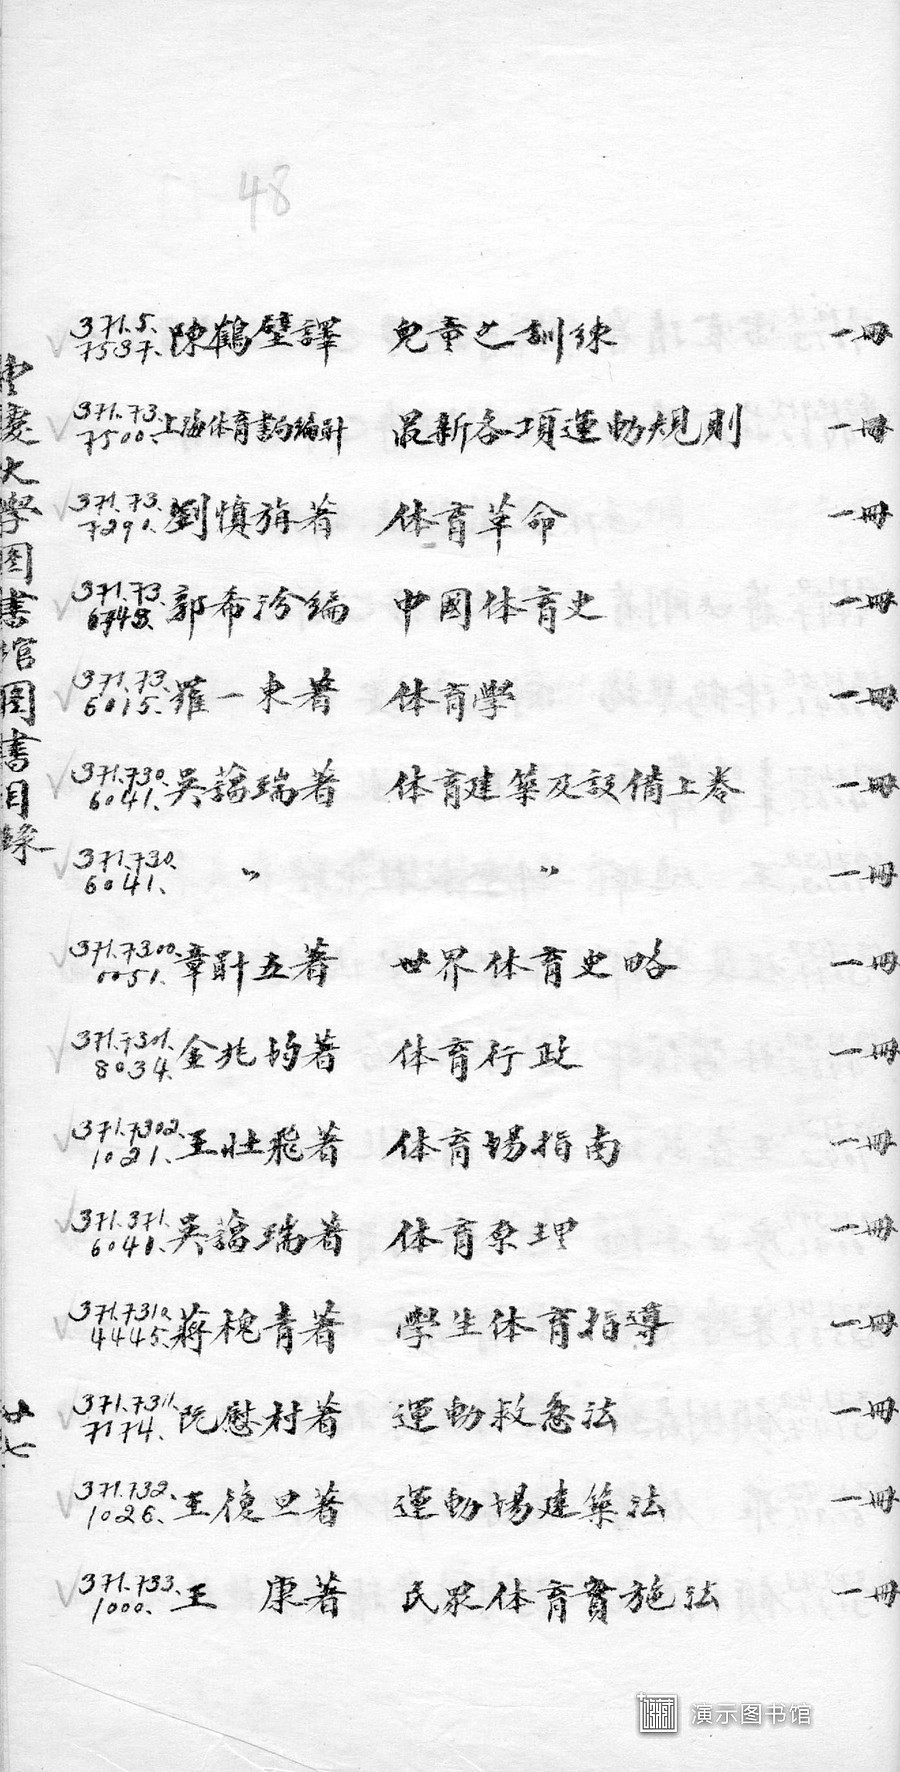 48
371.5. 7537. 陳鶴壁譯 兒童之訓練 一冊
371.73. 7500. 上海体育書局編計 最新各項運動規則 一冊
371.73. 7291. 劉慎旃著 体育革命 一冊
371.73. 郭希汾編 中國体育史 一冊
371.73. 6015. 羅一東著 体育學 一冊
371.730. 6041. 吳蘊瑞著 体育建築及設備上卷 一冊
371.730. 6041. 〃 〃 一冊
371.7300. 0051. 章尉五著 世界体育史略 一冊
371.7301. 8034. 金兆均著 体育行政 一冊
371.7302. 1021. 王壯飛著 体育場指南 一冊
371.371. 6041. 吳蘊瑞著 体育原理 一冊
371.7310. 4445. 蔣槐青著 學生体育指導 一冊
371.7311. 7174. 阮慰村著 運動救急法 一冊
371.732. 1026. 王復旦著 運動場建築法 一冊
371.733. 1000. 王 康著 民眾体育實施法 一冊
重慶大學図書館図書目錄
廿七
演示图书馆